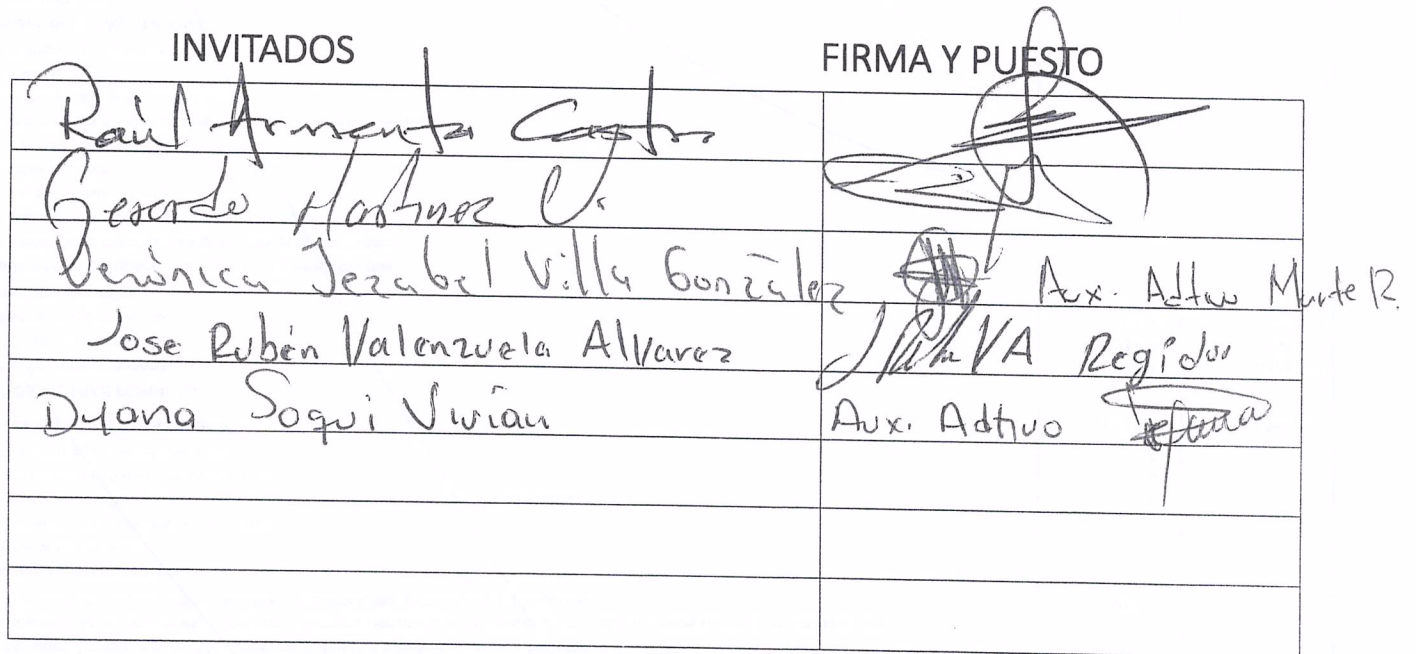 INVITADOS FIRMA Y PUESTO
Raúl Armenta Castro
Gerardo Martinez V.
Verónica Jezabel Villa González Aux. Adtivo
Jose Rubén Valenzuela Alvarez Regidor
Dyana Soqui Vivian Aux. Adtivo